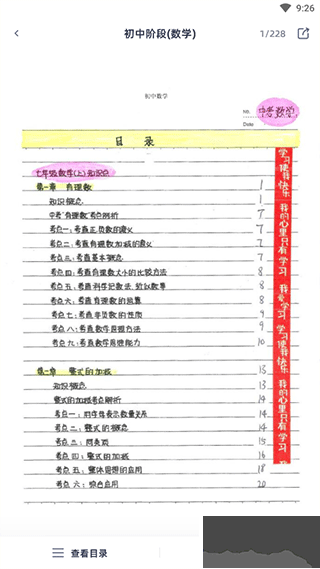 9:26
初中阶段(数学)
1/228
初中数学
No. 中考数学
Date
目 录
七年级数学(上)知识点
第一章 有理数 1
知识概念 1
中考"有理数"考点辨析 7
考点一：考查正负数的意义 7
考点二：考查有理数加减的意义 7
考点三：考查基本概念 7
考点四：考查有理数大小的比较方法 8
考点五：考查科学记数法、
考点六：考查有理数的运算 8
考点七：考查非负数的性质 9
考点八：考查数学思想方法 9
考点九：考查数学思维能力 10
第二章 整式的加减 13
知识概念 13
整式的加减考点解析 14
考点一：用字母表示数量关系 14
考点二：整式的概念 14
考点三：同类项 15
考点四：整式的加减 16
考点五：整体思想的应用 18
考点六：综合应用 20
学习使我快乐 我的心里只有学习 我爱学习 学习使我快乐 我的心里只有学习
查看目录